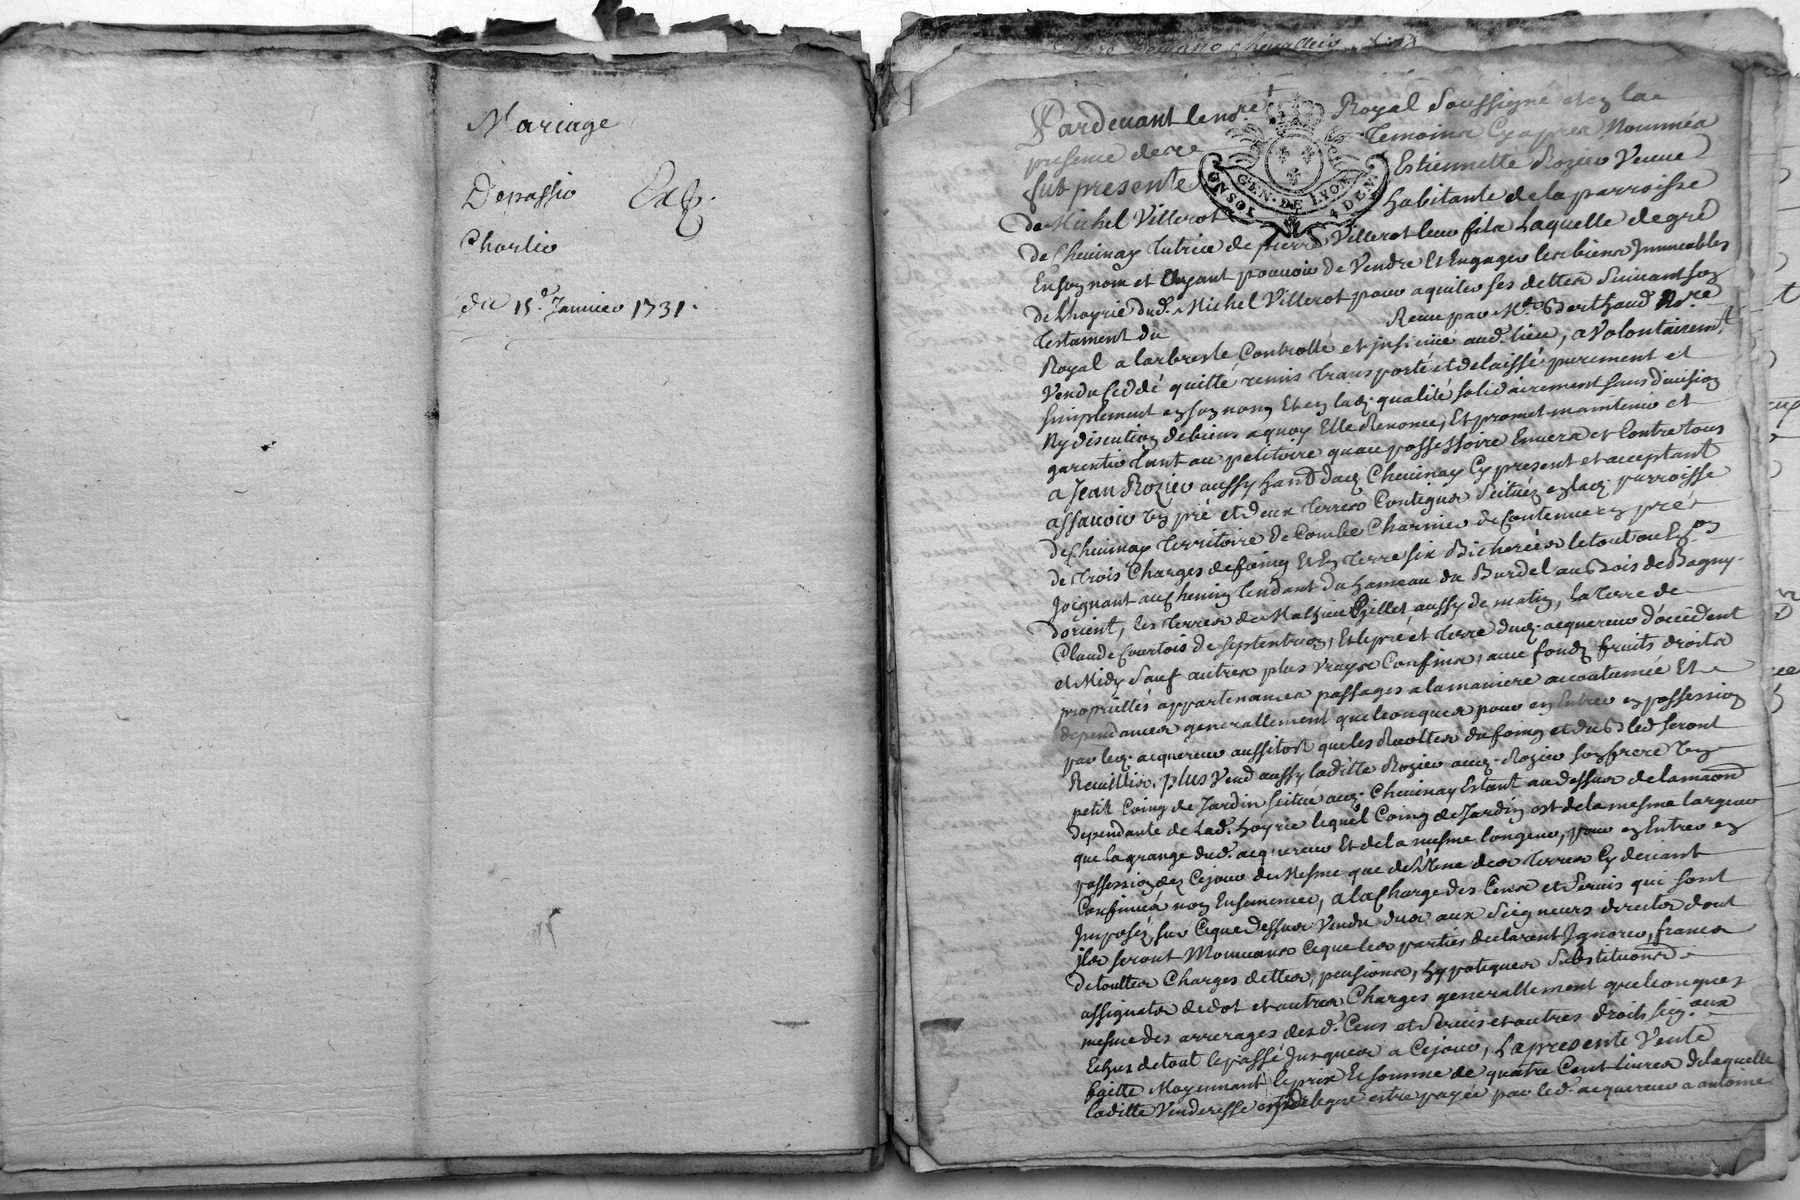 Mariage
Depassio
Charlio
du 15.e Janvier 1731.
Pardevant le no.re Royal Soussigné et en la
presence des Temoins Cy apres Nommés
fut presente Estiennette Rozier Veuve
GEN. DE LYON
4 DEN.
de Michel Villerot habitante de la parroisse
de Chevinay tutrice de pierre Villerot leur fils Laquelle de gré
En son nom et Ayant pouvoir de Vendre Et Engager les biens Immeubles
de Lhoyrie dud. Michel Villerot pour aquiter ses dettes Suivant son
testament du Receu par M.e Berthaud No.re
Royal a larbresle Controllé et insinué aud. lieu, a Volontairem.t
Vendu Ceddé quitté remis transporté et delaissé purement et
simplement en son nom Et en lad. qualité solidairement sans division
Ny discution de biens a quoy Elle Renonce, Et promet maintenir et
garentir tant au petitoire quau possessoire Envers et Contre tous
a Jean Rozier aussy hant dud. Chevinay Cy present et acceptant
assavoir Un pré et deux terres Contigues Scituéz en lad. parroisse
de Chevinay territoire de Combe Charnier de Contenue en pré
de trois Charges de foing Et En terre six Bicherées le tout
Joignant au Chemin tendant du hameau du Burdel au Bois de Bagny
dorient, les terres de Mathieu Gillet aussy de matin, la terre de
Claude Courtois de septentrion, Et le pré et terre dud. acquereur d'occident
et Midy Sauf autres plus vrays Confins, avec fondz fruits droits
proprietés appartenances passages a la maniere acoutumée Et
dependances generallement quelconques pour en Entrer en possession
par led. acquereur aussitost que les Recoltes du foing et du Bled seront
Reuillies. plus Vend aussy laditte Rozier aud. Rozier son frere Un
petit Coing de Jardin scitué aud. Chevinay Estant au dessus de la maond
dependante de Lad. hoyrie lequel Coing de Jardin est de la mesme largeur
que la grange dud. acquereur Et de la mesme longeur, pour en Entrer en
possession dez Cejour de Mesme que de des terres Cy devant
Confinées non Ensemencé, a la Charge des Cens et Servis qui sont
Imposéz sur Ceque dessus Vendu dus aux Seigneurs directes dont
ils seront Mouvans Ceque les parties declarent Ignorer, francs
de touttes Charges dettes, pensions, hypoteques Substituons
assignats de dot et autres Charges generallement quelconques
mesme des arrerages desd. Cens et Servis et autres droits seig.aux
Echus de tout le passé Jusques a Cejour, La presente Vente
faitte Moyennant le prix Et somme de quatre Cent livres de laquelle
laditte Venderesse delegue estre payée par led. acquereur a antoine